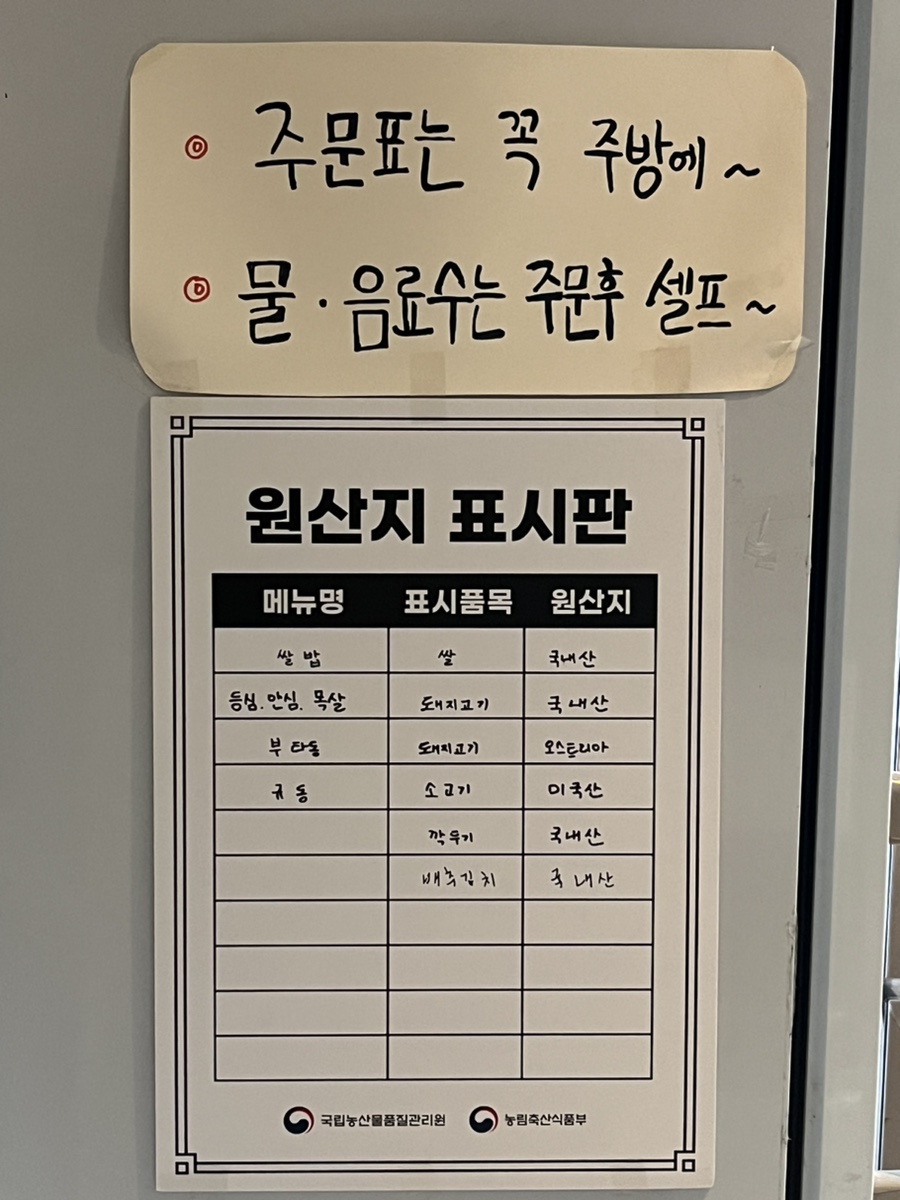 ◎ 주문표는 꼭 주방에~
◎ 물·음료수는 주문후 셀프~
원산지 표시판
메뉴명 표시품목 원산지
쌀밥 쌀 국내산
등심.안심.목살 돼지고기 국내산
부타동 돼지고기 오스트리아
규동 소고기 미국산
깍두기 국내산
배추김치 국내산
국립농산물품질관리원 농림축산식품부